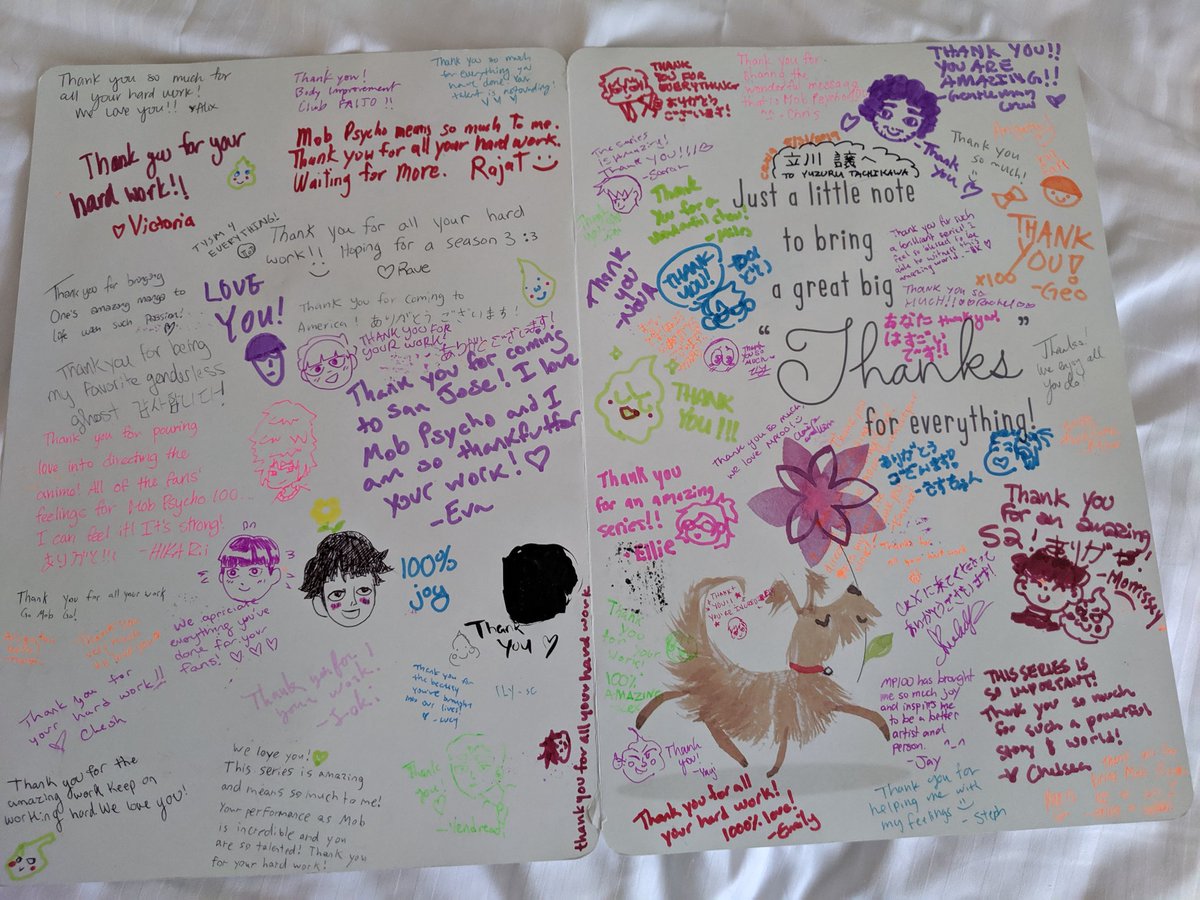 Thank you so much for
all your hard work!
We love you!! Alix
Thank you!
Body Improvement
Club FAITO!!
Thank you so much
for everything you
have done! Your
talent is astounding!
Thank you for your
hard work!!
♡ Victoria
Mob Psycho means so much to me.
Thank you for all your hard work.
Waiting for More. Rajat
TYSM 4
EVERYTHING!
Thank you for all your hard
work!! Hoping for a season 3 :3
♡ Rave
Thank you for bringing
One's amazing manga to
life with such passion!
LOVE
YOU!
Thank you for coming to
America! ありがとうございます!
THANK YOU FOR
YOUR WORK!
ありがとうございます!
Thank you for being
my favorite genderless
ghost 감사합니다!
Thank you for coming
to San Jose! I love
Mob Psycho and I
am so thankful for
your work! ♡
-Eva
Thank you for pouring
love into directing the
anime! All of the fans'
feelings for Mob Psycho 100...
I can feel it! It's strong!
ありがと!!! -HIKARii
100%
joy
Thank you for all your work
Go Mob Go!
We apriciate
everything you've
done for your
fans! ♡ ♡ ♡
Thank
You ♡
Thank you for
your hard work!!
♡ Chesh
Thank you for
your work!
Thank you for
the beauty
you've brought
into our lives!
- Lucy
ILY-SC
thank you for all your hard work
Thank you for the
amazing work keep on
working hard We love you!
We love you!
This series is amazing
and means so much to me!
Your performance as Mob
is incredible and you
are so talented! Thank you
for your hard work!
Thank
you!
-Vendread
THANK
YOU FOR
EVERYTHING
ありがとう
ございます!
Thank you for
sharing the
wonderful message
that is Mob Psycho!!
- Chris
THANK YOU!!
YOU ARE
AMAZING!!
-Gentleman
crew ♡
-Thank
you ♡
The series
is amazing!
Thank YOU!!!♡
-Sarah
立川 譲へ
TO YUZURU TACHIKAWA
Thank you
so much!
Thank
you for a
wonderful show!
Just a little note
to bring
a great big
"Thanks"
for everything!
Thank you for such
a brilliant series! I
feel so blessed to be
able to witness this
amazing world.
THANK
YOU!
x100 -Geo
THANK
YOU
-NOVA
THANK
YOU!
THANK YOU SO
MUCH!!
あなた thank you!
はすごい
です!!
Thank
you so
much
THANK
YOU!!!
Thanks.
We enjoy all
you do!
Thank you so much,
we love MP100!
ありがとう
ございます!
Thank you
for an amazing
series!!
Ellie
Thank you
for an amazing
S2! ありがとう!
-Morrissey
THANK
YOU!
YOU'RE INCREDIBLE
Thank
you for
your
work!
100%
AMAZING
MP100 has brought
me so much joy
and inspires me
to be a better
artist and
person. ^-^
-Jay
THIS SERIES IS
SO IMPORTANT!
Thank you so much
for such a powerful
story & world!
-♥ Chelsea
Thank
you!
Thank you for all
your hard work!
100% love!
-Emily
Thank you for
helping me with
my feelings
- Steph